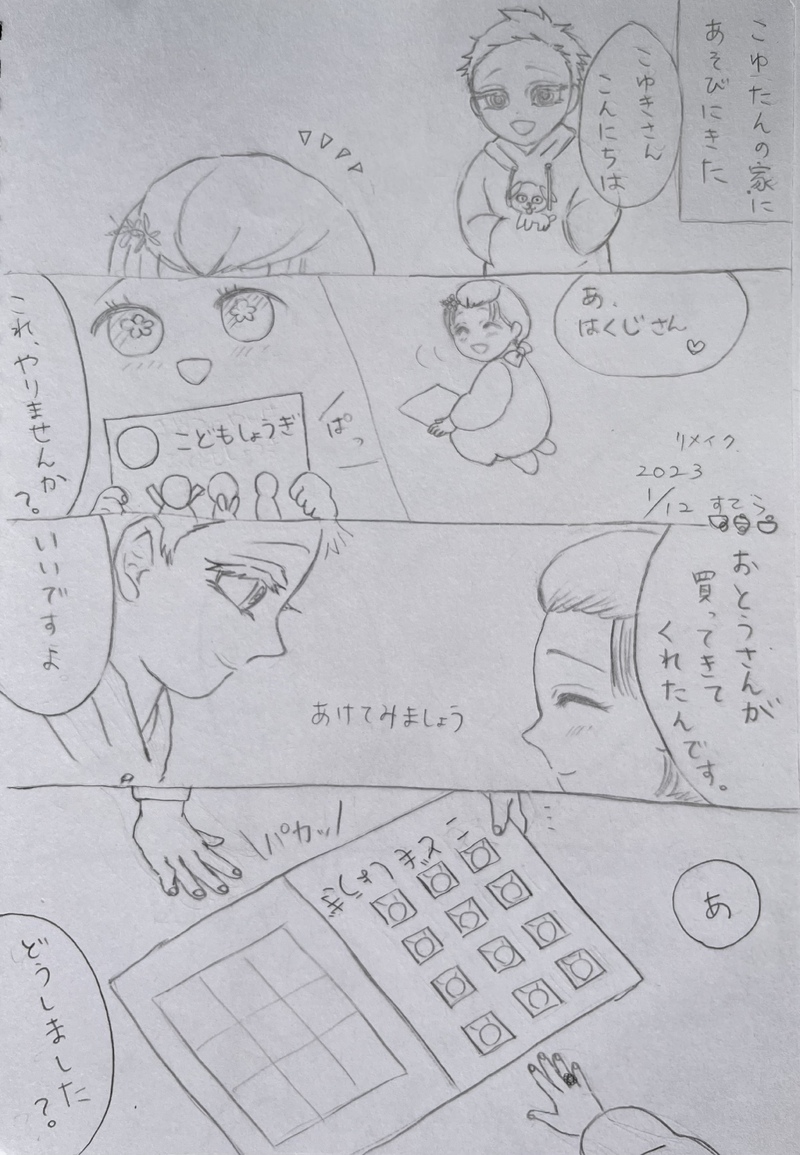 こゆたんの家に
あそびにきた
こゆきさん
こんにちは
あ、
はくじさん♡
ぱっ
こどもしょうぎ
これ、やりませんか?
リメイク
2023
1/12 すてら
おとうさんが
買ってきて
くれたんです。
いいですよ
あけてみましょう
パカッ
あ
どうしました?